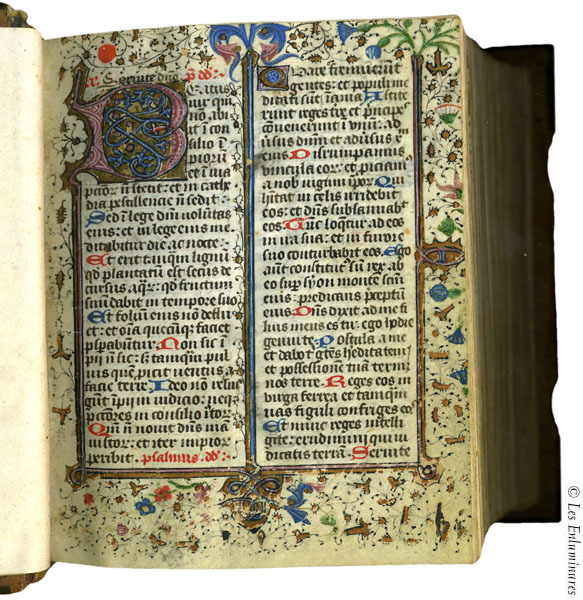 Seruite dno ps dd
Beatus
uir qui
nō abi
it ī con
silio ī
piorū
et ī uia
pccor ī stetit: et in cathe
dra pestilencie n̄ sedit
Sed ī lege dm̄i uolūtas
eius: et in lege eius me
ditabitur die ac nocte
Et erit tanqm̄ lignū
qd plantatum est secus de
cursus aqr: qd fructum
suū dabit in tempore suo
Et folium eius nō deflu
et: et oīa quecūqz faciet
prosperabūtur Non sic ī
pij n̄ sic: sz tamquā pul
uis quē picit uentus a
facie terre Ideo nō resur
gūt īpij in iudicio: neqz
pccores in consilio iustor
Qm̄ nouit dn̄s uiā
iustor: et iter impior
peribit. psalmus dd
Quare fremuerūt
gentes: et populi me
ditati sūt īania Astite
rūnt reges tre et prīcipes
cōuenerunt ī vnū: ad
uersus dnm̄ et aduersus xm̄
eius Disrumpamus
vincula eor: et piciam9
a nob iugum ipor Qui
hītat in celis irridebit
eos: et dn̄s subsannabit
eos Tūc loqtur ad eos
in ira sua: et in furore
suo conturbabit eos Ego
aūt constitut9 sū rex ab
eo sup syon monte scm̄
eius: predicans preceptū
eius Dn̄s dixit ad me fi
lius meus es tu: ego hodie
genui te Postula a me
et dabo t gētes hereditatem
et possessionē tuā termi
nos terre Reges eos in
uirga ferrea et tamqm̄
uas figuli confriges eos
Et nunc reges intelli
gite: erudimini qui iu
dicatis terram Seruite
© Les Enluminures